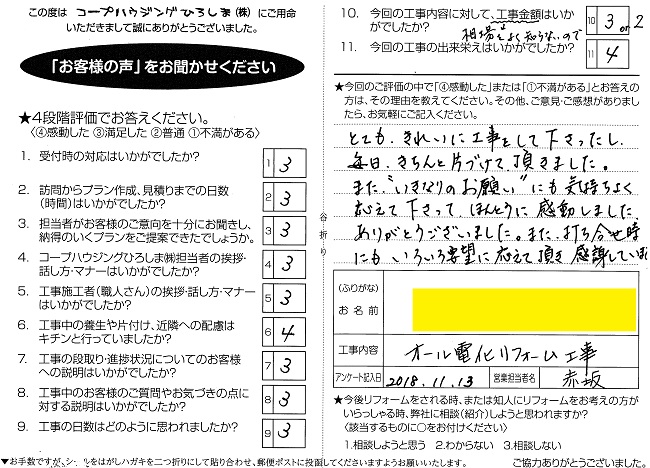 この度は コープハウジングひろしま(株) にご用命
いただきまして誠にありがとうございました。
「お客様の声」をお聞かせください
★4段階評価でお答えください。
〈④感動した ③満足した ②普通 ①不満がある〉
1. 受付時の対応はいかがでしたか? 1 3
2. 訪問からプラン作成、見積りまでの日数
(時間)はいかがでしたか? 2 3
3. 担当者がお客様のご意向を十分にお聞きし、
納得のいくプランをご提案できたでしょうか。 3 3
4. コープハウジングひろしま㈱担当者の挨拶・
話し方・マナーはいかがでしたか? 4 3
5. 工事施工者(職人さん)の挨拶・話し方・マナー
はいかがでしたか? 5 3
6. 工事中の養生や片付け、近隣への配慮は
キチンと行っていましたか? 6 4
7. 工事の段取り・進捗状況についてのお客様
への説明はいかがでしたか? 7 3
8. 工事中のお客様のご質問やお気づきの点に
対する説明はいかがでしたか? 8 3
9. 工事の日数はどのように思われましたか? 9 3
▼お手数ですが、シールをはがしハガキを二つ折りにして貼り合わせ、郵便ポストに投函してくださいますようお願いいたします。
谷折り
10. 今回の工事内容に対して、工事金額はいか
がでしたか? 相場をよく知らないので 10 3 or 2
11. 今回の工事の出来栄えはいかがでしたか? 11 4
★今回のご評価の中で「④感動した」または「①不満がある」とお答えの
方は、その理由を教えてください。その他、ご意見・ご感想がありまし
たら、お気軽にご記入ください。
とても、きれいに工事をして下さったし、
毎日、きちんと片づけて頂きました。
また、"いきなりのお願い"にも気持ちよく
応えて下さって、ほんとうに感動しました
ありがとうございました。また、打ち合せ時
にもいろいろ要望に応えて頂き感謝していま
(ふりがな)
お名前
工事内容 オール電化リフォーム工事
アンケート記入日 2018.11.13 営業担当者名 赤坂
★今後リフォームをされる時、または知人にリフォームをお考えの方が
いらっしゃる時、弊社に相談(紹介)しようと思われますか?
〈該当するものに○をお付けください〉
1.相談しようと思う 2.わからない 3.相談しない
ご協力ありがとうございました。